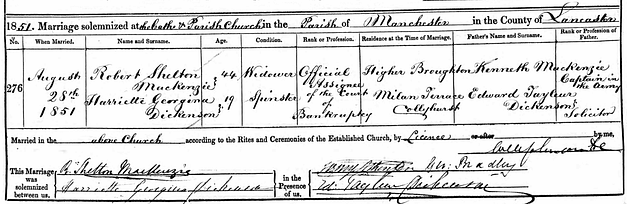 1851. Marriage solemnized at the Cathl & Parish Church in the Parish of Manchester in the County of Lancaster
When Married. Name and Surname. Age. Condition. Rank or Profession. Residence at the Time of Marriage. Father's Name and Surname. Rank or Profession of Father.
276
August 28th 1851
Robert Shelton Mackenzie 44 Widower Official Assignee of the Court of Bankruptcy Higher Broughton Kenneth Mackenzie Captain in the Army
Harriette Georgina Dickenson 19 Spinster Milan Terrace Collyhurst Edward Tayleur Dickenson Solicitor
Married in the above Church according to the Rites and Ceremonies of the Established Church, by Licence or after by me,
This Marriage was solemnized between us,
R. Shelton Mackenzie
Harriette Georgina Dickenson
in the Presence of us,
Bradley
Ed. Tayleur Dickenson